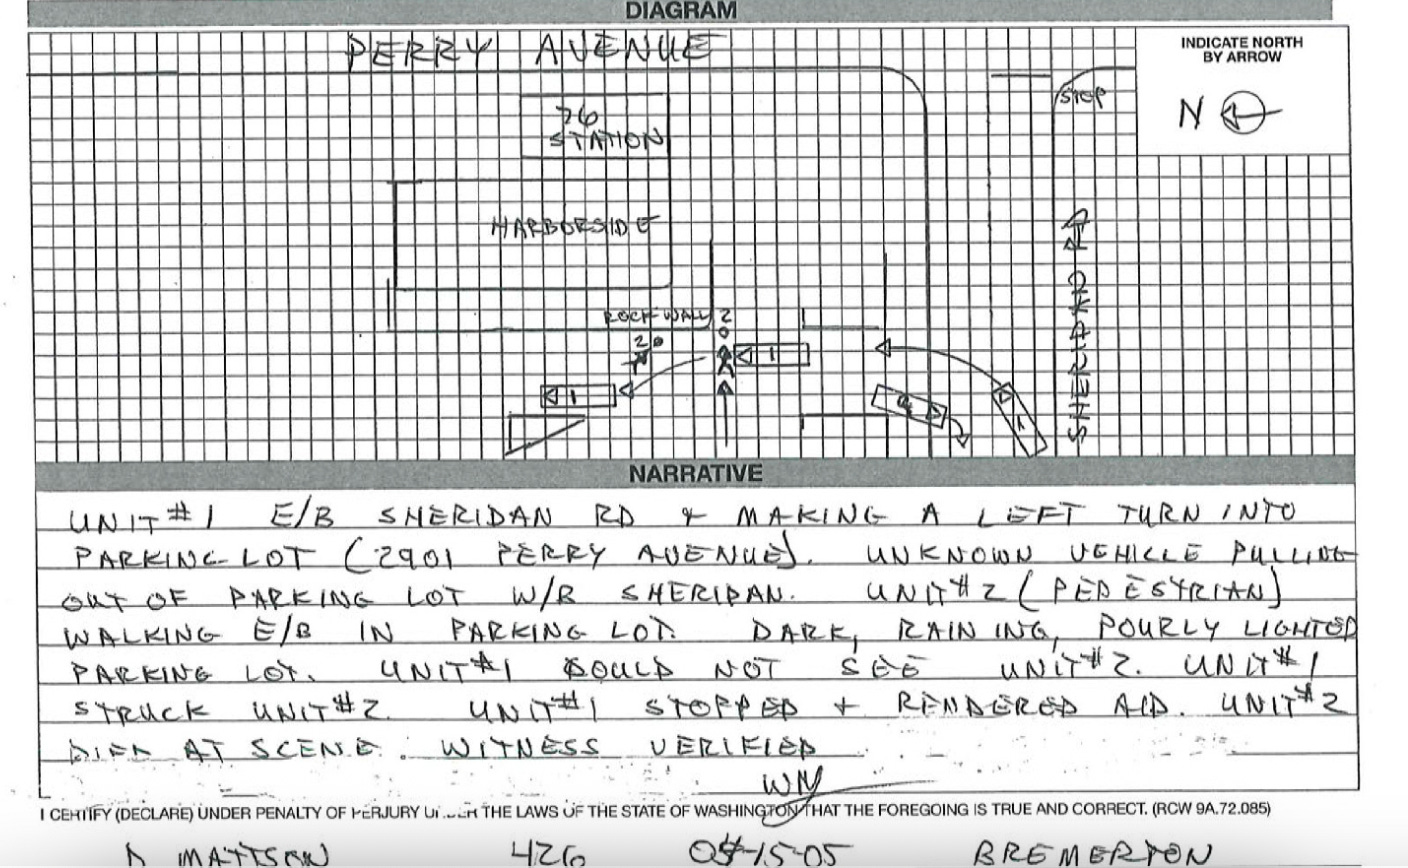 DIAGRAM
PERRY AVENUE
INDICATE NORTH
BY ARROW
N
STOP
76
STATION
HARBORSIDE
SHERIDAN RD
ROCK WALL 2
2
1
1
1
NARRATIVE
UNIT #1 E/B SHERIDAN RD & MAKING A LEFT TURN INTO
PARKING LOT (2901 PERRY AVENUE). UNKNOWN VEHICLE PULLING
OUT OF PARKING LOT W/B SHERIDAN. UNIT #2 (PEDESTRIAN)
WALKING E/B IN PARKING LOT. DARK, RAINING, POURLY LIGHTED
PARKING LOT. UNIT #1 COULD NOT SEE UNIT #2. UNIT #1
STRUCK UNIT #2. UNIT #1 STOPPED + RENDERED AID. UNIT #2
DIED AT SCENE. WITNESS VERIFIED
I CERTIFY (DECLARE) UNDER PENALTY OF PERJURY UNDER THE LAWS OF THE STATE OF WASHINGTON THAT THE FOREGOING IS TRUE AND CORRECT. (RCW 9A.72.085)
D MATTSON 426 -15-05 BREMERTON